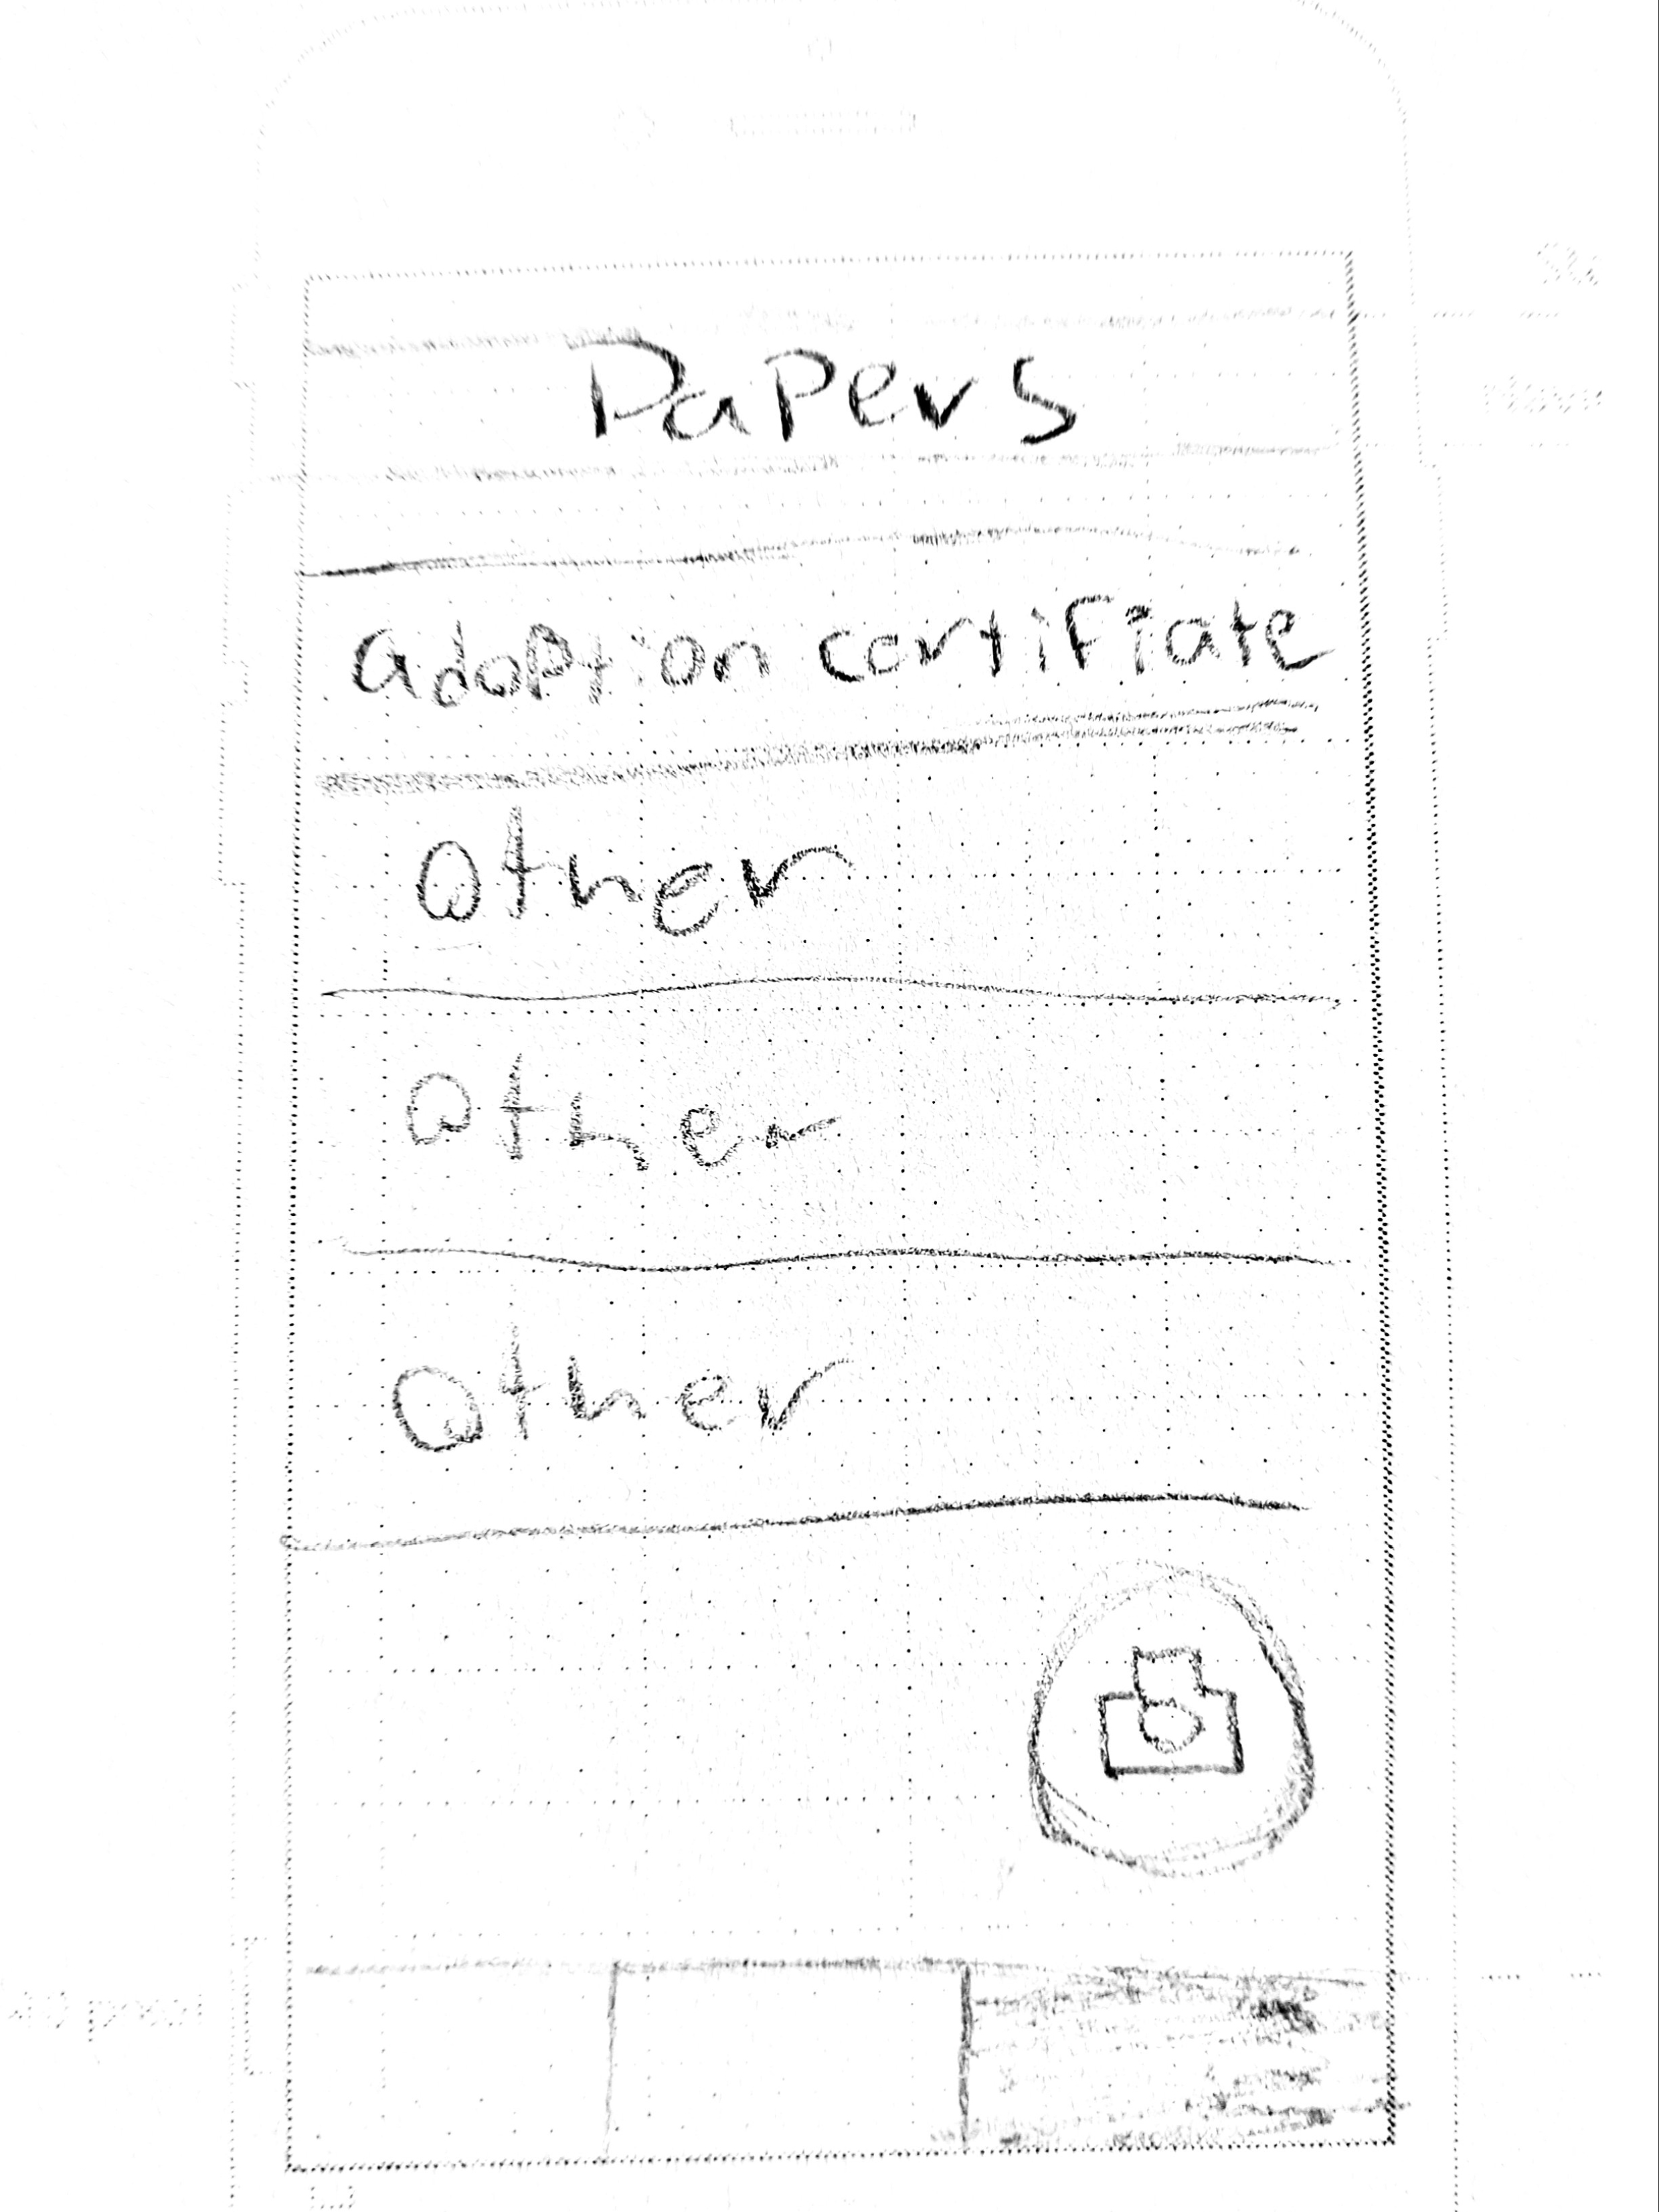 Papers
Adoption certifiate
Other
Other
Other